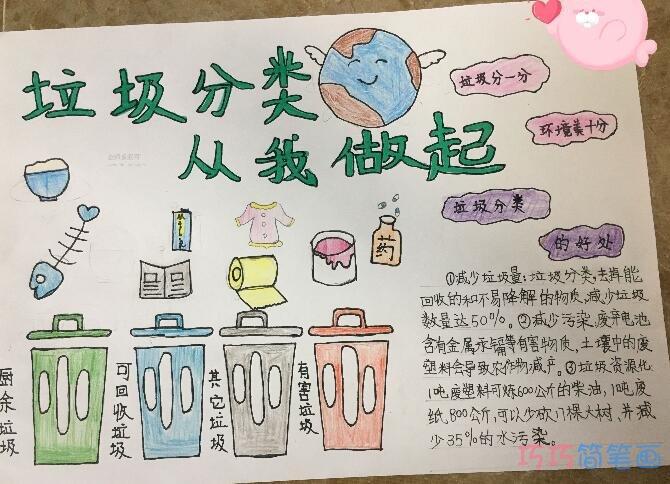 垃圾分类
从我做起
垃圾分一分
环境美十分
垃圾分类
的好处
药
厨余垃圾
可回收垃圾
其它垃圾
有害垃圾
①减少垃圾量:垃圾分类,去掉能
回收的和不易降解的物质,减少垃圾
数量达50%。②减少污染,废弃电池
含有金属汞镉等有害物质,土壤中的废
塑料会导致农作物减产。③垃圾资源化
1吨废塑料可炼600公斤的柴油,1吨废
纸800公斤,可以少砍17棵大树,并减
少35%的水污染。
巧巧简笔画